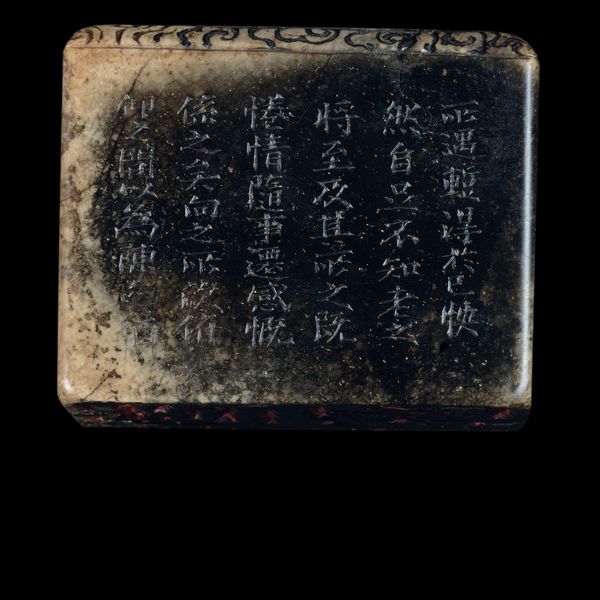 所遇蹔得於己怏
然自足不知老之
將至及其所之既
惓情隨事遷感慨
係之矣向之所俛
仰之間以為陳迹猶